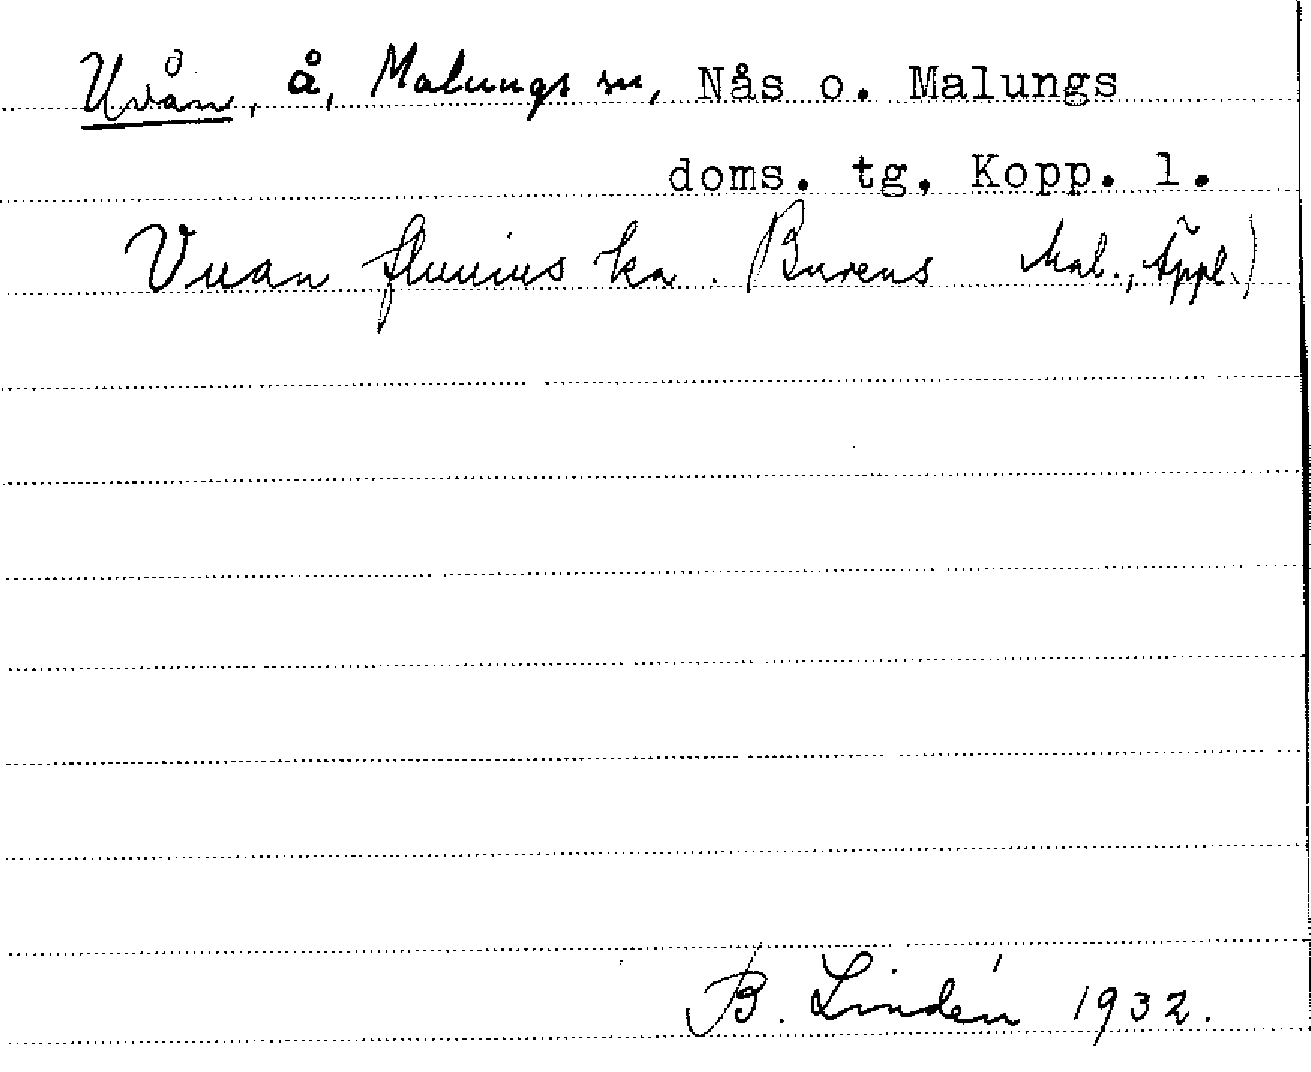 Uvån, å, Malungs sn, Nås o. Malungs
doms. tg. Kopp. l.
Vuan fluuius ka. (Bureus Mal., Äppl.)
B. Lindén 1932.